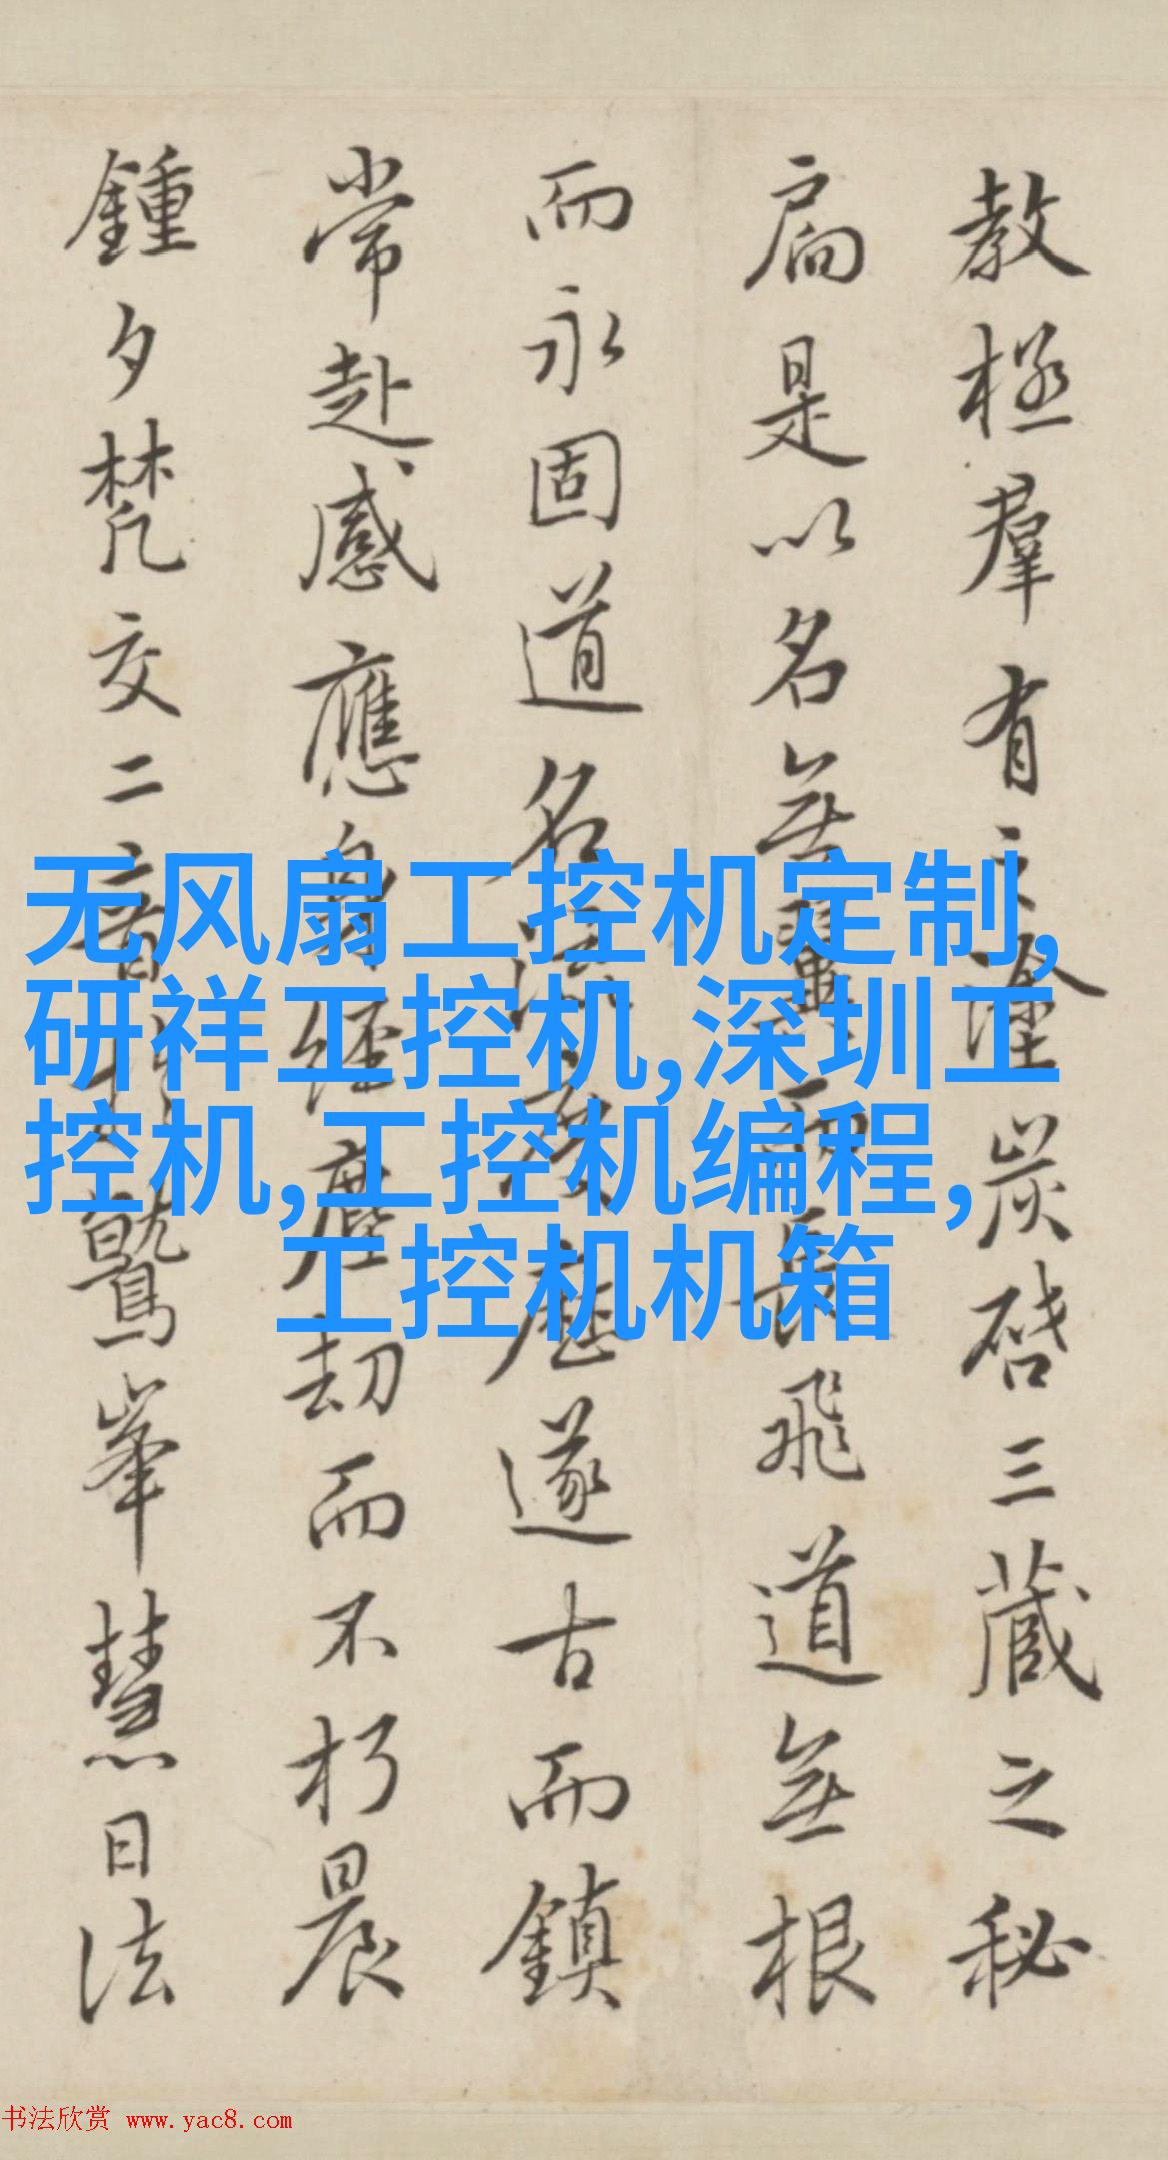 教極羣有之塗炭啓三藏之秘
扃是以名無翼而長飛道無根
而永固道名流慶歷遂古而鎮
常赴感應身經塵劫而不朽晨
鍾夕梵交二音於鷲峯慧日法
无风扇工控机定制,
研祥工控机,深圳工
控机,工控机编程,
工控机机箱
书法欣赏 www.yac8.com